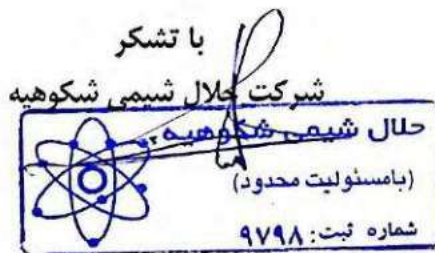 با تشکر
شرکت حلال شیمی شکوهیه
حلال شیمی شکوهیه
(بامسئولیت محدود)
شماره ثبت: ۹۷۹۸